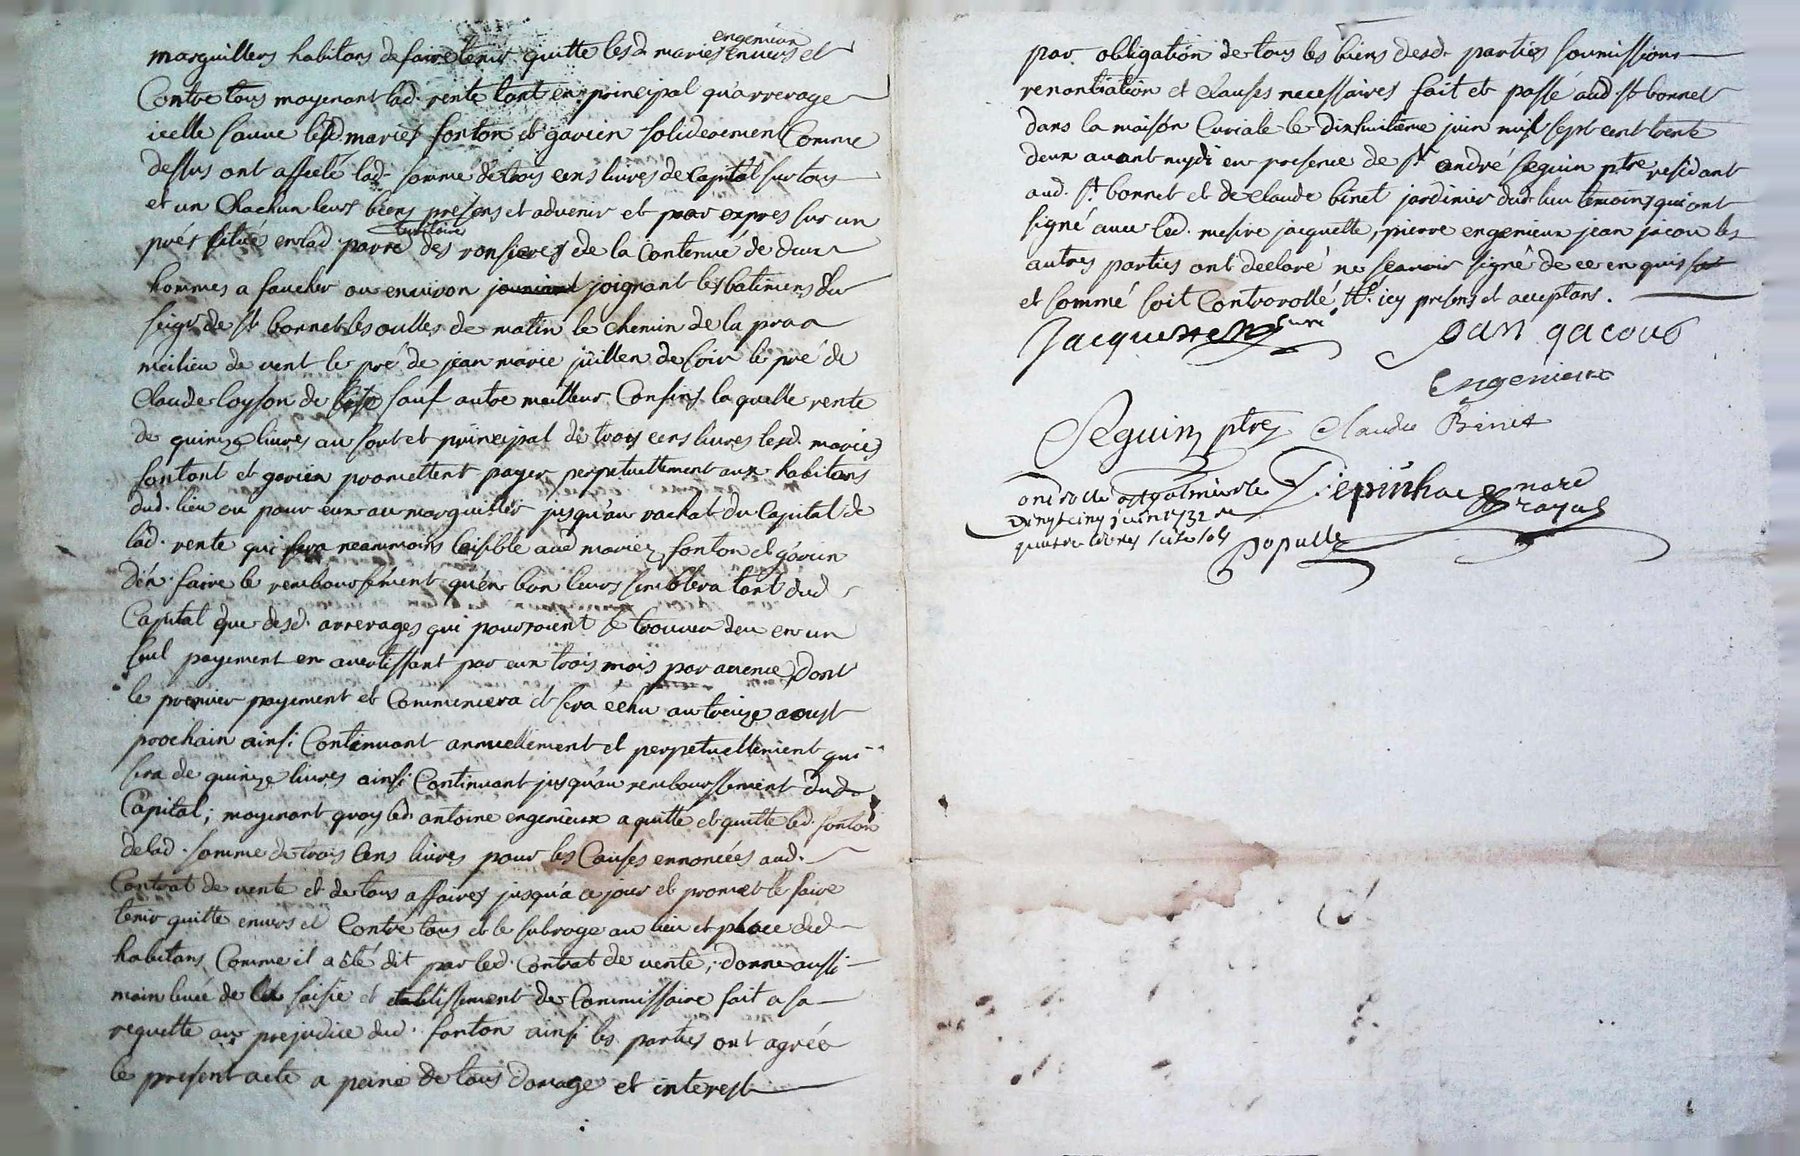 engenieux
marguilliers habitans de faire tenir quitte lesd. mariés envers et
Contre tous moyenant lad. rente tant en principal qu'arrerage
icelle sauve lesd mariés fonton et gavien soliderement Comme
dessus ont affecté lad. somme de trois cens livres de Capital sur tous
et un Chachun leurs biens presens et advenir et par expres sur un
pré situé en lad. parre des ronsieres de la Contenue de deux
hommes a faucher ou environ joignant les batimens du
seigr de st bonnet les oulles de matin le chemin de la praa
meilieu de vent le pré de jean marie juillen de soir le pré de
Claude loyson de bise sauf autre meilleur Confins la quelle rente
de quinze livres au sort et principal de trois cens livres lesd. mariés
fontont et gavien promettent payer perpetuellement aux habitans
dud. lieu ou pour eux au marguillier jusqu'au rachat du Capital de
lad. rente qui sera neanmoins loisible aud mariez fonton et gavien
d'en faire le remboursement qu'en bon leurs semblera tant dud
Capital que desd. arrerages qui pourroient se trouver deu en un
seul payement en avertissant par eux trois mois par avence, dont
le premier payement et Commencera et sera echu au treize aoust
prochain ainsi Continuant annuellement et perpetuellement qui
sera de quinze livres ainsi Continuant jusqu'au remboursement dud
Capital; moyenant quoy led. antoine engenieux a quitté et quitte led. fonton
de lad. somme de trois Cens livres pour les Causes ennoncées aud.
Contrat de vente et de tous affaires jusqu'a ce jour et promet le faire
tenir quitte envers et Contre tous et le subroge au lieu et place dud
habitans Comme il a été dit par led. Contrat de vente; donne aussi
main levée de la saisie et etablissement de Commissaire fait a sa
requette au prejudice dud. fonton ainsi les parties ont agréé
le present acte a peine de tous domage et interest
par obligation de tous les biens desd. parties soumissions
renontiation et clauses necessaires fait et passé aud st bonnet
dans la maison Curiale le dixhuitieme juin mil sept cent trente
deux avant mydi en presence de sr andré seguin ptre residant
aud. st bonnet et de claude binet jardinier dud lieu temoins qui ont
signé avec led. mesire jacquette, pierre engenieux jean jacou les
autres parties ont declaré ne scavoir signé de ce enquis
et sommé soit Controrollé, icy presens et acceptans.
Jacquette Curé
Jan Jacous
Engenieux
Seguin ptre
Claude Binet
Depinhac
vingt cinq juin 1732
quatre livres
Populle